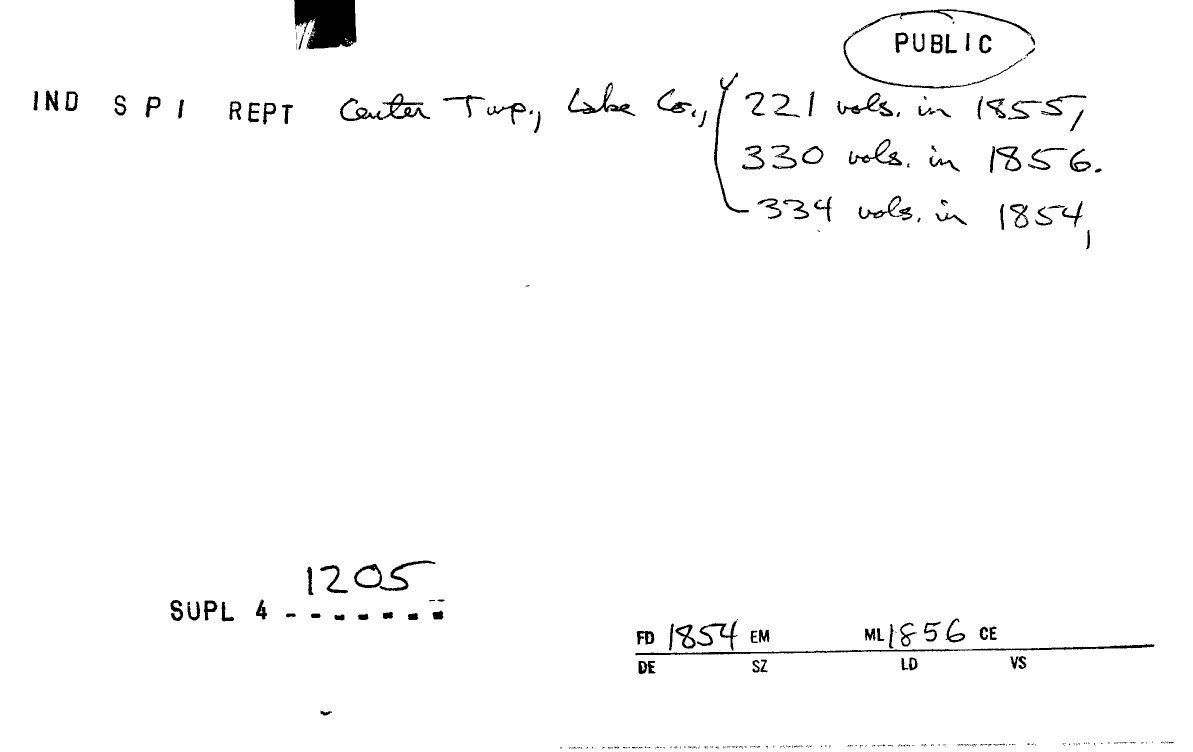 PUBLIC
IND S P I REPT Center Twp., Lake Co., 221 vols. in 1855,
330 vols. in 1856.
334 vols. in 1854,
1205
SUPL 4 - - - - - - -
FD 1854 EM ML 1856 CE
DE SZ LD VS